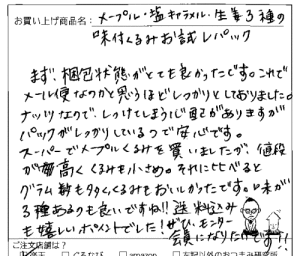 お買い上げ商品名: メープル・塩キャラメル・生姜3種の
味付くるみお試しパック
まず、梱包状態がとても良かったです。これで
メール便なのかと思うほどしっかりとしておりました。
ナッツなので、しっけてしまう心配がありますが
パックがしっかりしているので安心です。
スーパーでメープルくるみを買いましたが、値段
が高くくるみも小さめ。それに比べると
グラム数も多くくるみもおいしかったです。味が
3種あるのも良いですね!!送料込み
も嬉しいポイントでした!ぜひ、モニター
会員になりたいです!!
ご注文店舗は?
楽天 ぐるなび amazon 左記以外のおつまみ研究所